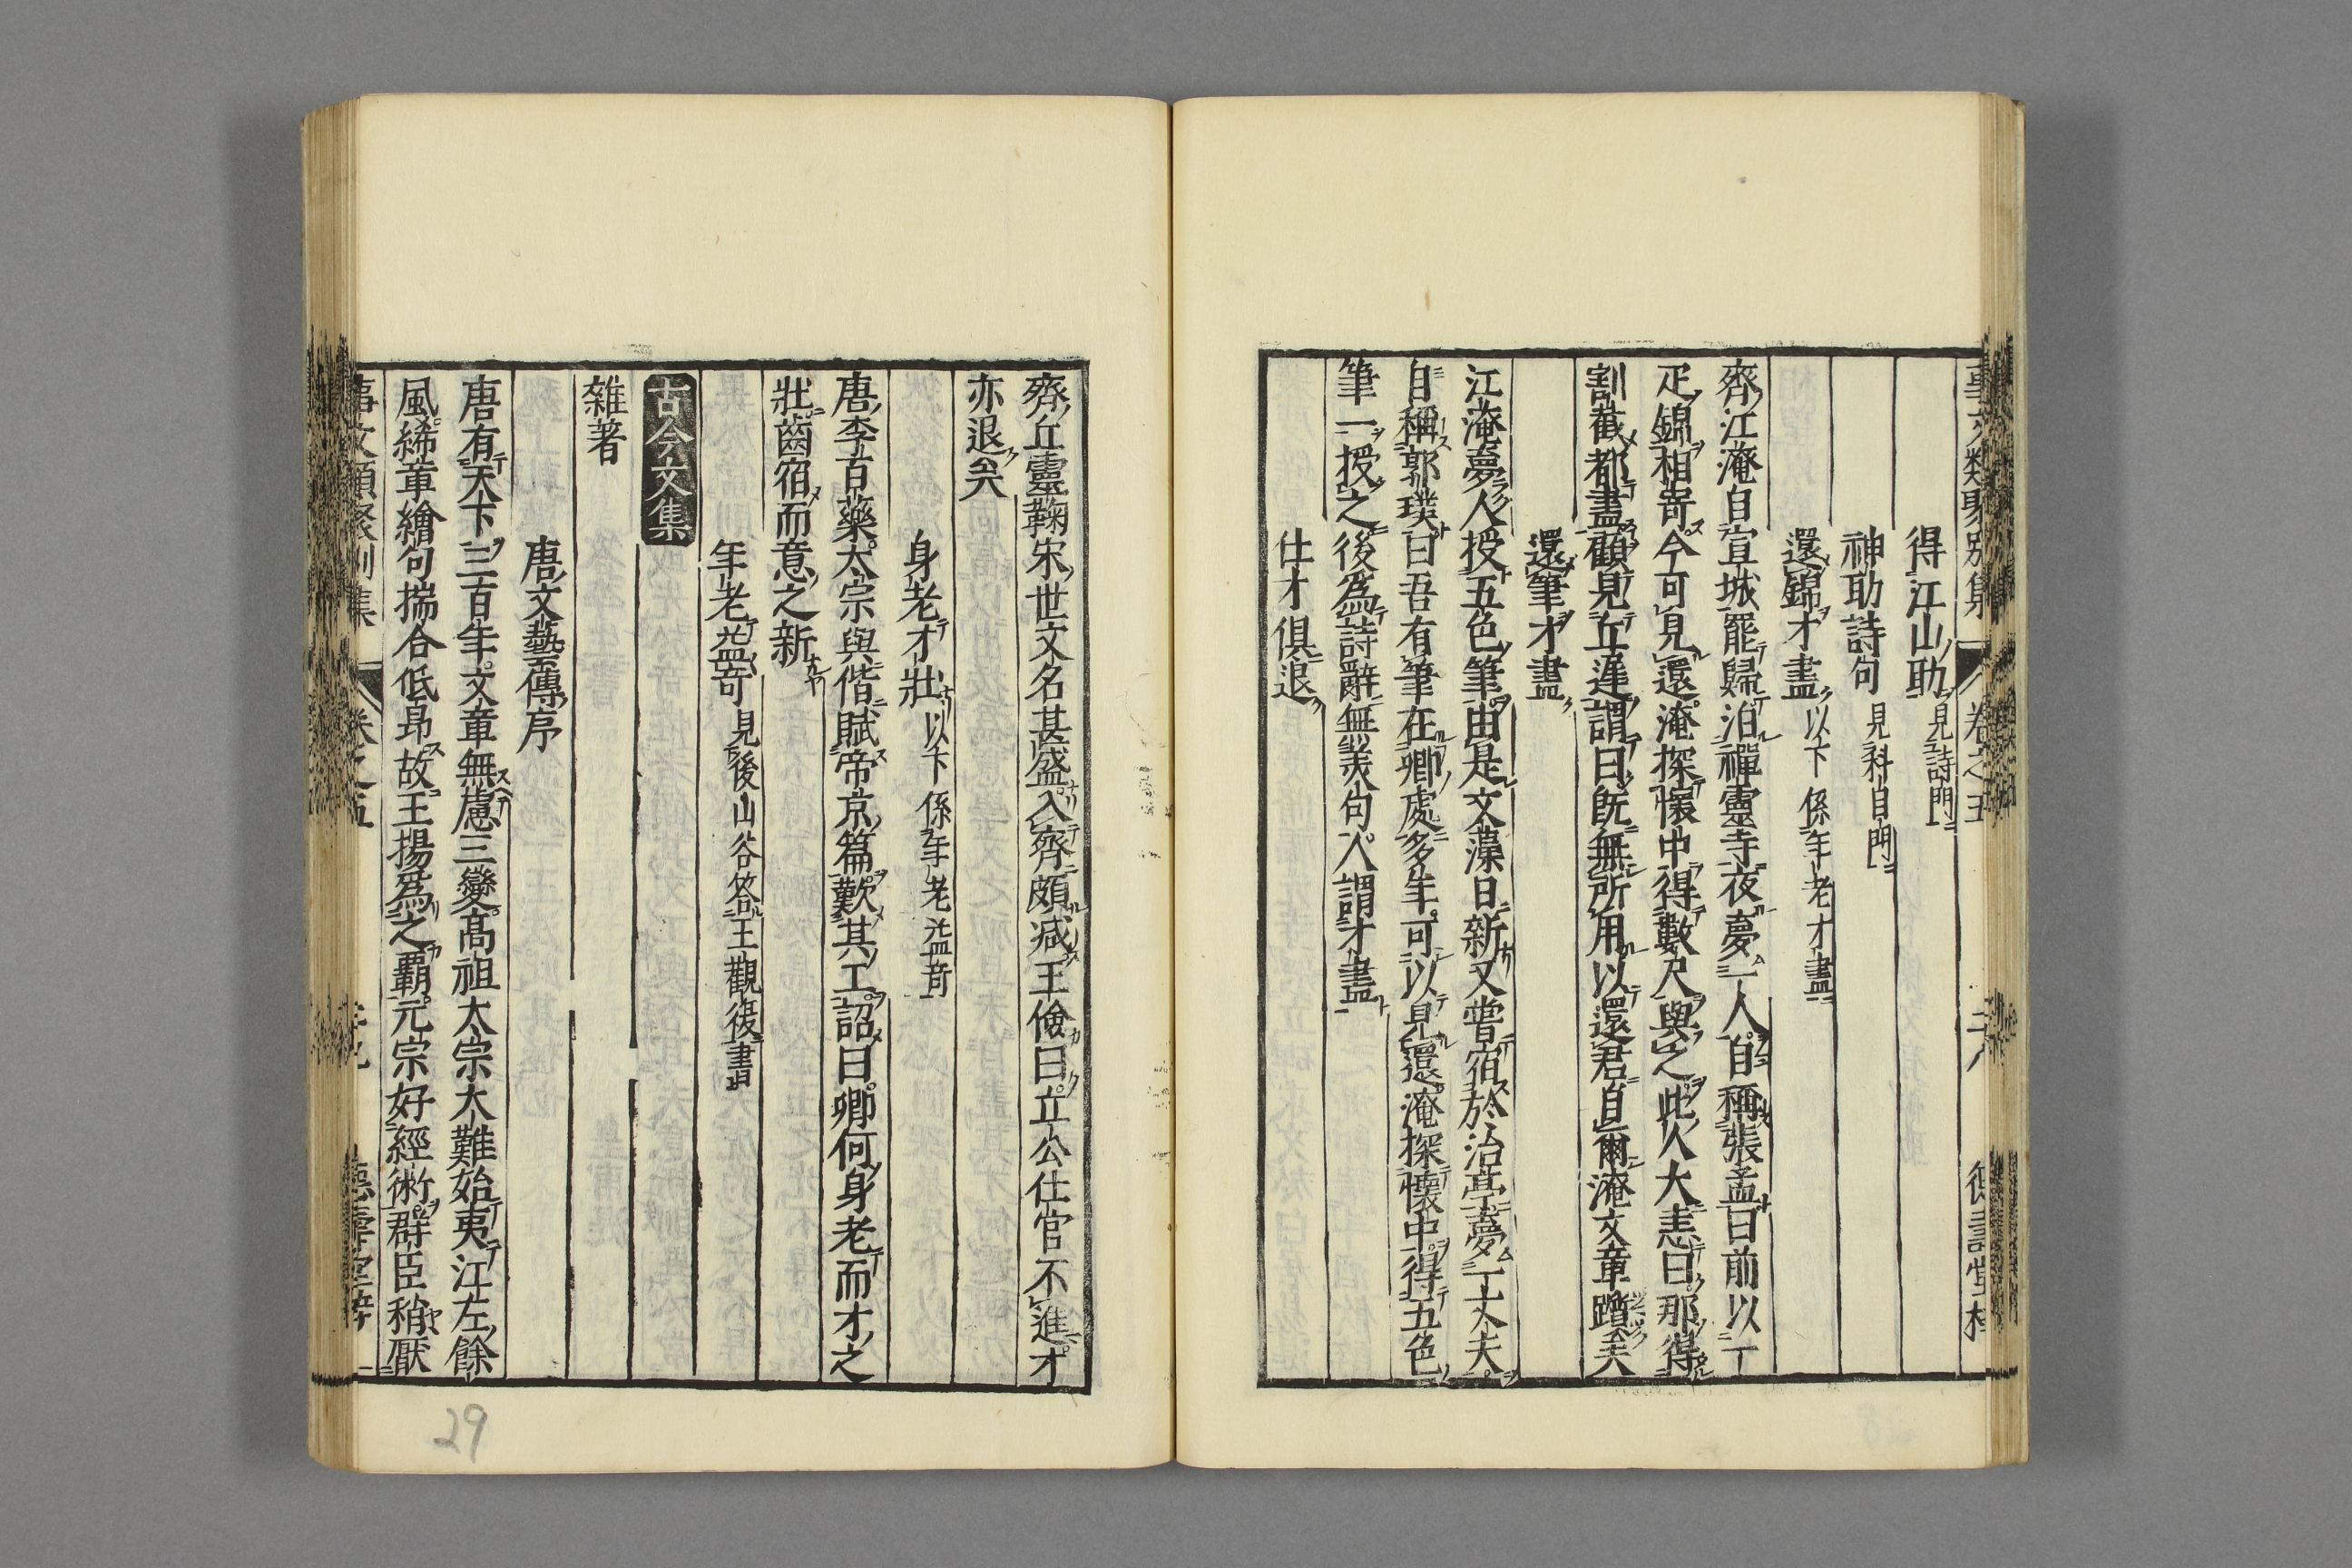 事文類聚別集 卷之五 二十八 德壽堂梓
得江山助 見詩門
神助詩句 見科目門
還錦才盡 以下係年老才盡
齊江淹自宣城罷歸泊禪靈寺夜夢一人自稱張孟曰前以一
疋錦相寄今可見還淹探懷中得數尺與之此人大恚曰那得
割截都盡顧見丘遲謂曰旣無所用以還君自爾淹文章躓矣
還筆才盡
江淹夢人授五色筆由是文藻日新又嘗宿於冶亭夢一丈夫
自稱郭璞曰吾有筆在卿處多年可以見還淹探懷中得五色
筆一授之後爲詩辭無美句人謂才盡
仕才俱退
齊丘靈鞠宋世文名甚盛入齊頗减王儉曰丘公仕官不進才
亦退矣
身老才壯 以下係年老益奇
唐李百藥太宗與偕賦帝京篇歎其工詔曰卿何身老而才之
壯齒宿而意之新
年老益奇 見後山谷答王觀復書
古今文集
雜著
唐文藝傳序
唐有天下三百年文章無慮三變高祖太宗大難始夷江左餘
風絺章繪句揣合低昂故王揚爲之霸元宗好經術群臣稍厭
事文類聚別集 卷之五 二十九 德壽堂梓
29